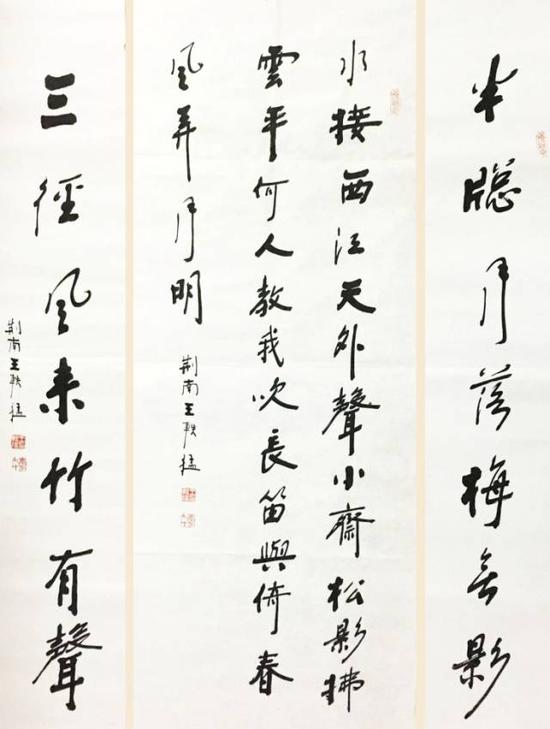 半窓月落梅無影
水接西江天外聲小齋松影拂
雲平何人教我吹長笛與倚春
風弄月明
荆南王軼猛
三徑風来竹有聲
荆南王軼猛